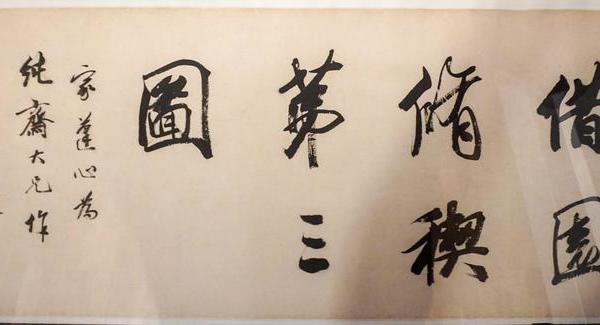 借園
脩禊
第三
圖
家蓬心為
純齋大兄作